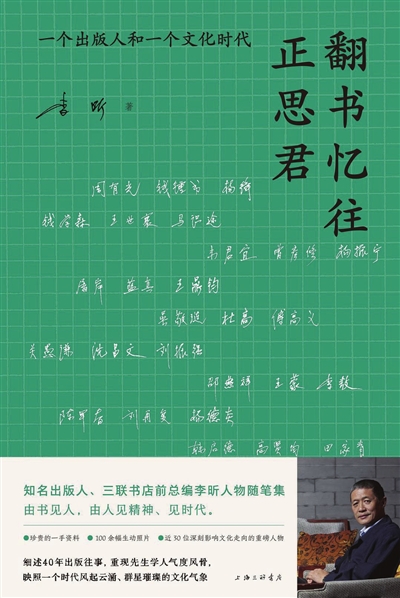 一个出版人和一个文化时代
翻书忆往
正思君
李昕 著
周有光 钱锺书 杨绛
钱学森 王世襄 马识途
韦君宜 曾彦修 杨振宁
唐岸 蓝真 王鼎钧
吴敬琏 杜高 傅高义
沈昌文 刘振强
邵燕祥 王蒙 李敖
陈早春 刘再复 杨德炎
韩启德 高贤均 田家青
知名出版人、三联书店前总编李昕人物随笔集
由书见人,由人见精神、见时代。
●珍贵的一手资料 ●100余幅生动照片 ●近30位深刻影响文化走向的重磅人物
细述40年出版往事,重现先生学人气度风骨,
映照一个时代风起云涌、群星璀璨的文化气象
上海三联书店